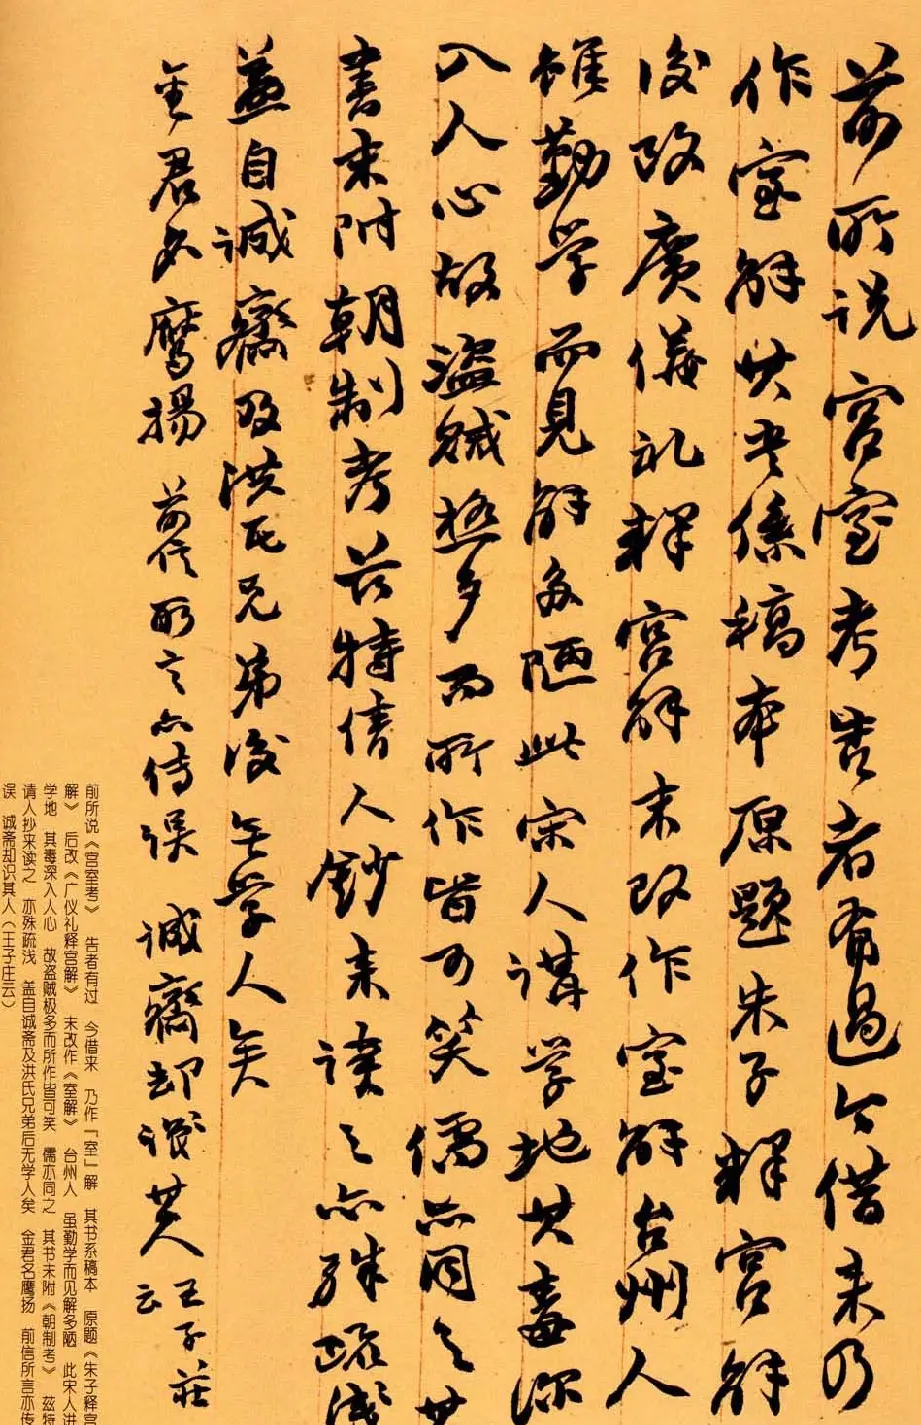 前所说宫室考告者有過今借来乃
作室解其書係稿本原題朱子釋宫解
後改廣儀礼釋宫解末改作室解台州人
雖勤学而見解多陋此宋人講学地其毒深
入人心故盗賊極多而所作皆可笑儒亦同之其
書末附朝制考兹特倩人鈔来读之亦殊疏浅
蓋自诚齋及洪氏兄弟後无学人矣
金君名鹰揚 前信所言亦传误 诚齋却識其人 王子莊云
前所说《宫室考》 告者有过 今借来 乃作「室」解 其书系稿本 原题《朱子释宫
解》 后改《广仪礼释宫解》 末改作《室解》 台州人 虽勤学而见解多陋 此宋人讲
学地 其毒深入人心 故盗贼极多而所作皆可笑 儒亦同之 其书末附《朝制考》 兹特
请人抄来读之 亦殊疏浅 盖自诚斋及洪氏兄弟后无学人矣 金君名鹰扬 前信所言亦传
误 诚斋却识其人（王子庄云）